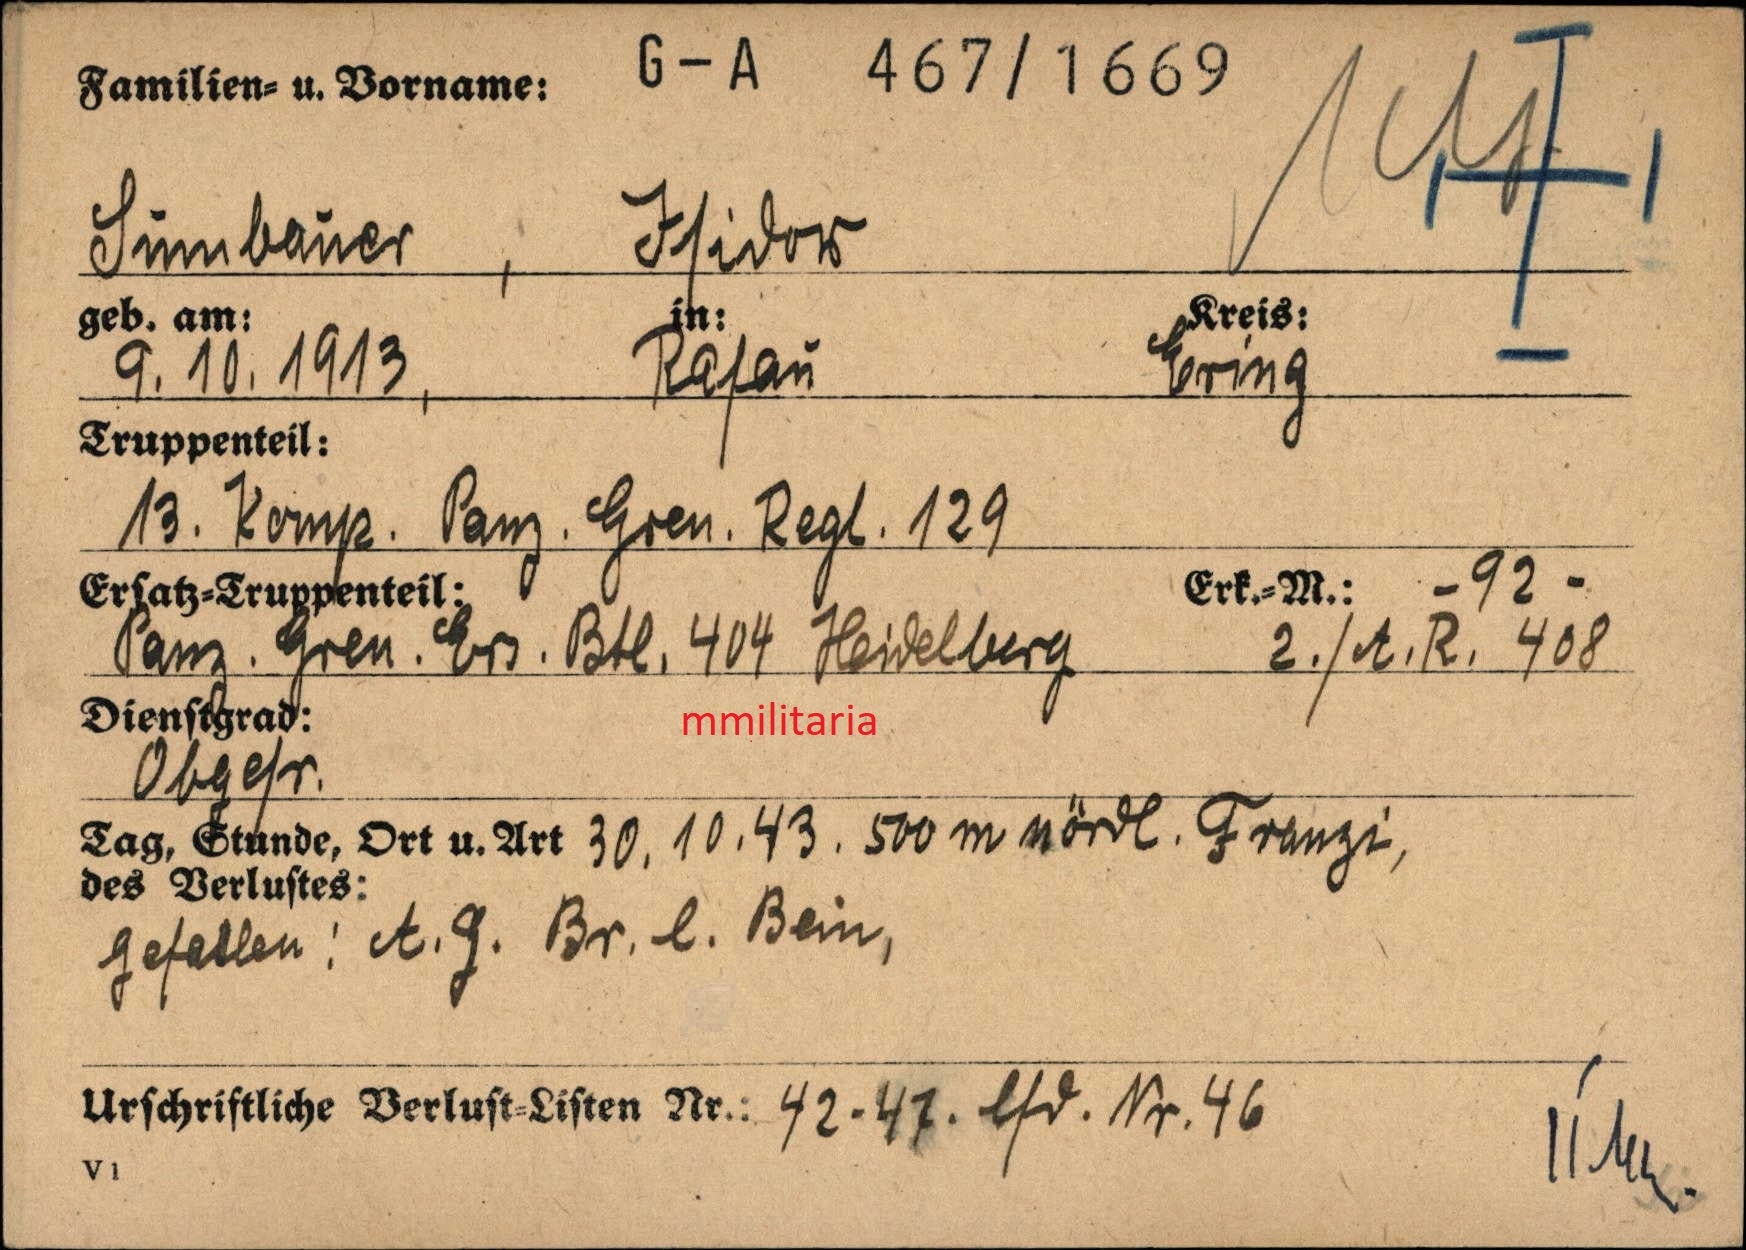 G-A 467/1669
Familien- u. Vorname:
Sumbauer, Isidor
geb. am: in: Kreis:
9.10.1913, Rafau Ering
Truppenteil:
13. Komp. Panz. Gren. Regt. 129
Ersatz-Truppenteil: Erk.-M.: -92-
Panz. Gren. Ers. Btl. 404 Heidelberg 2./A.R. 408
mmilitaria
Dienstgrad:
Obgefr.
Tag, Stunde, Ort u. Art 30.10.43. 500 m nördl. Franzi,
des Verlustes:
gefallen: A.G. Br. l. Bein,
Urschriftliche Verlust-Listen Nr.: 42-47. lfd. Nr. 46
V 1